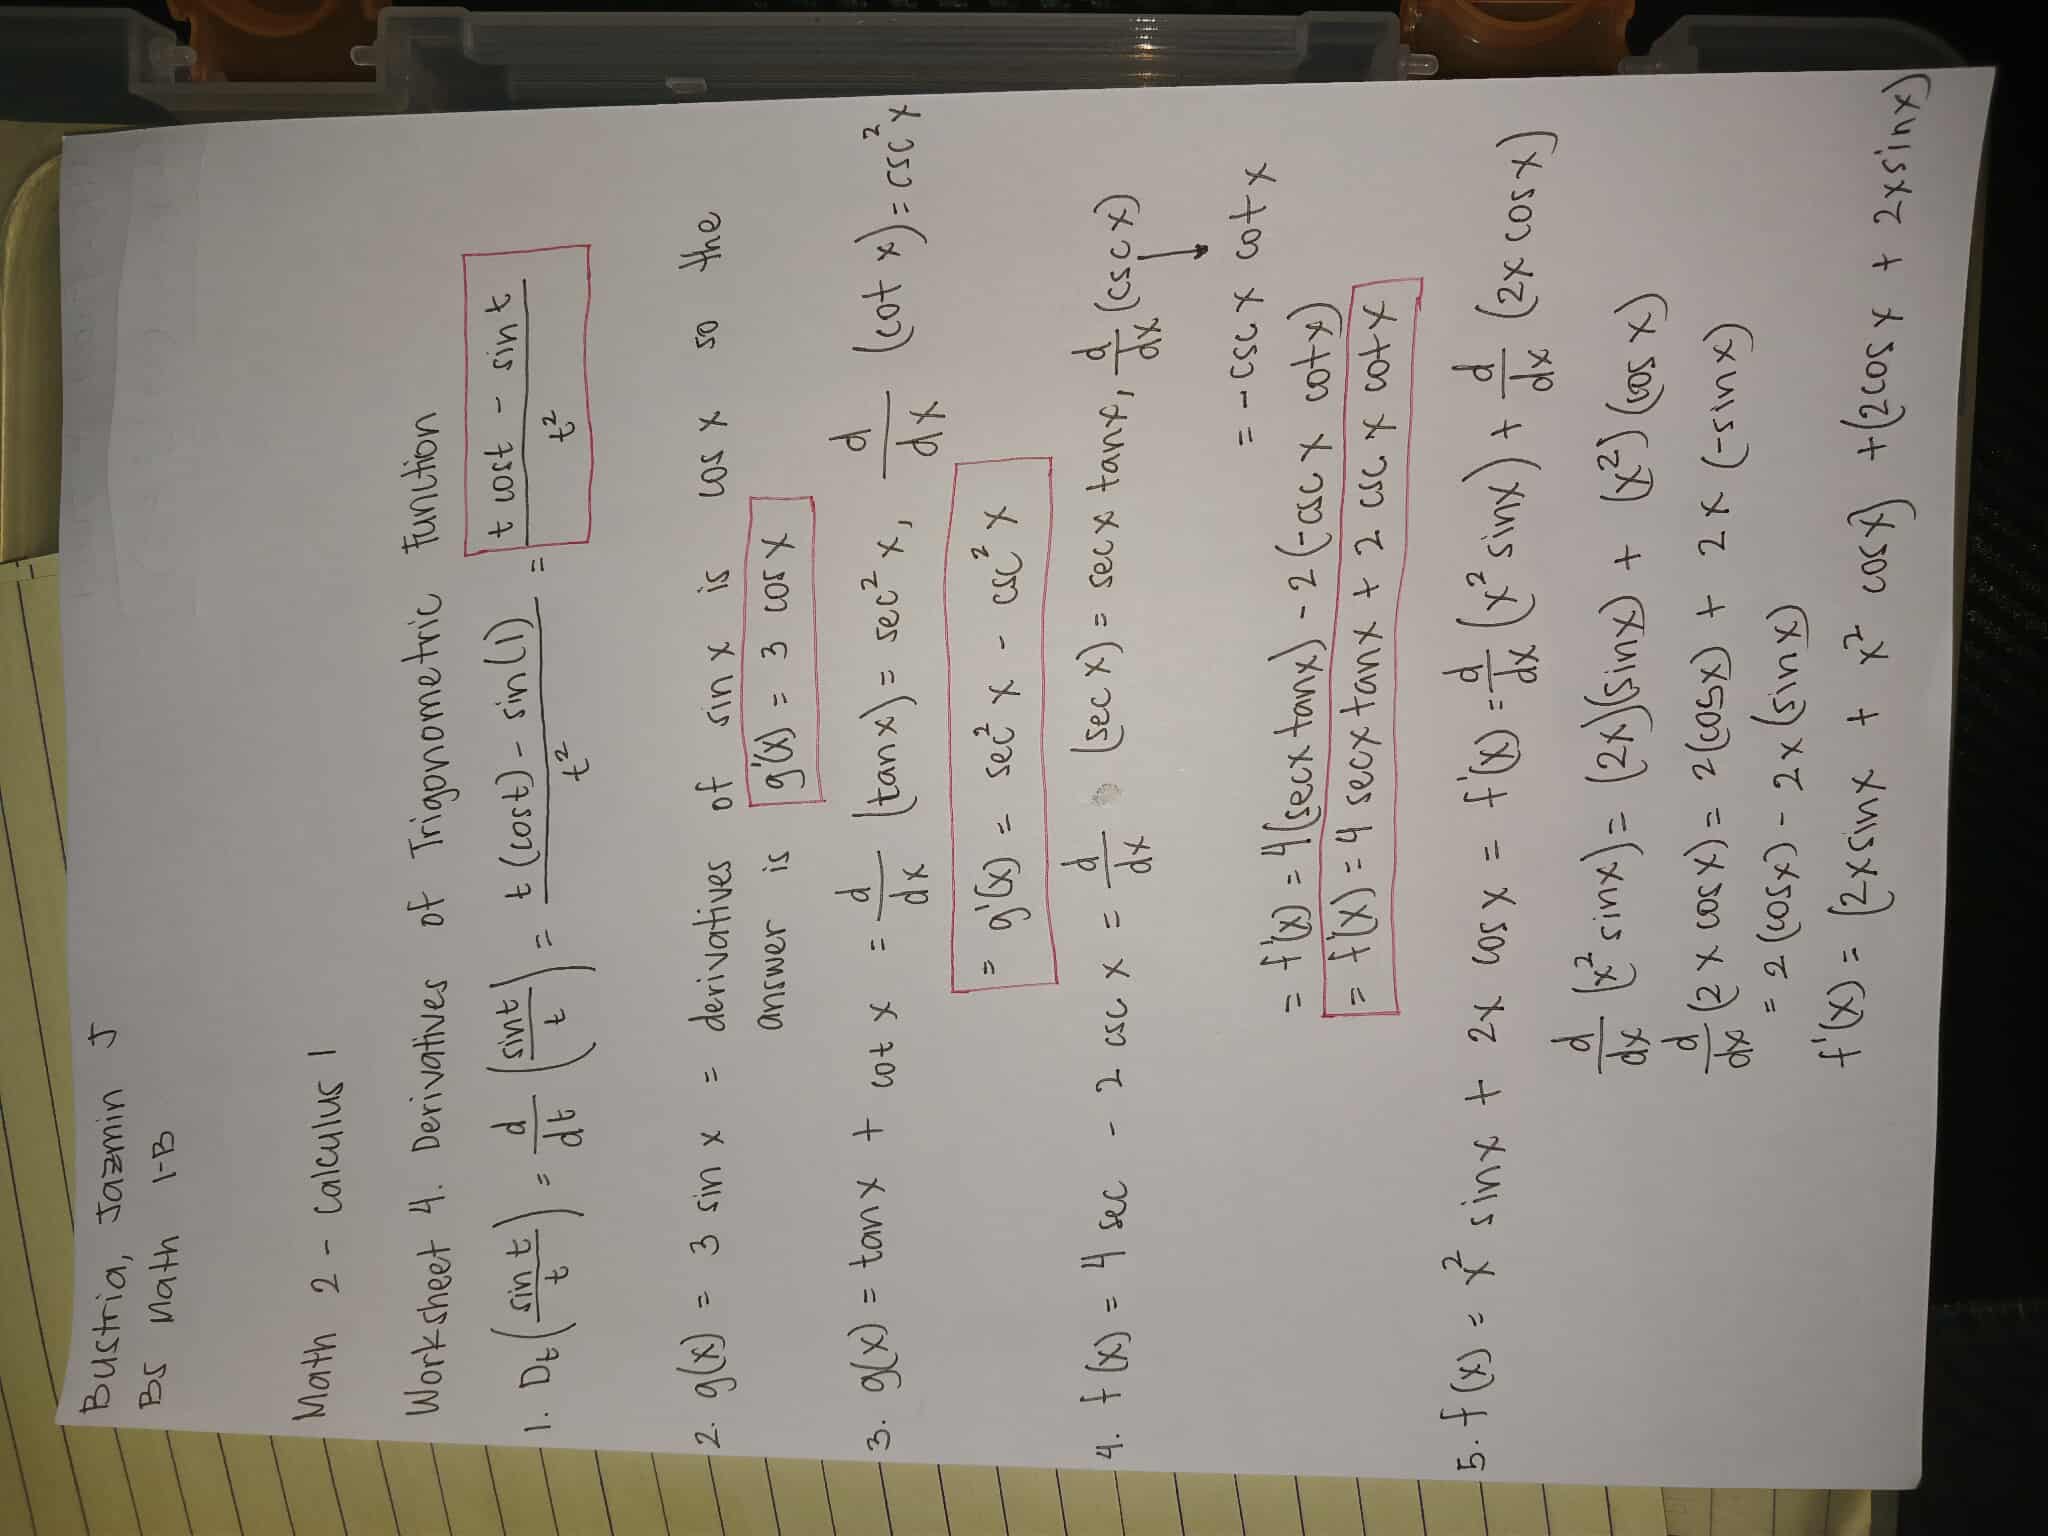 Bustria, Jazmin J
BS Math 1-B
Math 2 - Calculus 1
Worksheet 4. Derivatives of Trigonometric Function
1. Dₜ(sin t/t) = d/dt (sint/t) = t(cost) - sin(1)/t² = t cost - sint/t²
2. g(x) = 3 sin x = derivatives of sin x is cos x so the
answer is g'(x) = 3 cos x
3. g(x) = tanx + cot x = d/dx (tanx) = sec² x, d/dx (cot x) = csc² x
= g'(x) = sec² x - csc² x
4. f(x) = 4 sec - 2 csc x = d/dx (sec x) = sec x tanx, d/dx (csc x)
↓
= -csc x cot x
= f'(x) = 4(secx tanx) - 2(-csc x cotx)
= f'(x) = 4 secx tanx + 2 csc x cotx
5. f(x) = x² sinx + 2x cos x = f'(x) = d/dx (x² sinx) + d/dx (2x cosx)
d/dx (x² sinx) = (2x)(sinx) + (x²)(cos x)
d/dx (2x cosx) = 2(cosx) + 2x (-sinx)
= 2(cosx) - 2x(sinx)
f'(x) = (2x sinx + x² cosx) + (2cosx + 2xsinx)